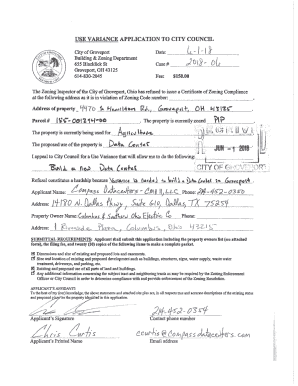 USE VARIANCE APPLICATION TO CITY COUNCIL
City of Groveport
Building & Zoning Department
655 Blacklick St
Groveport, OH 43125
614-830-2045
Date: 6-1-18
Case # 2018-06
Fee: $150.00
The Zoning Inspector of the City of Groveport, Ohio has refused to issue a Certificate of Zoning Compliance
at the following address as it is in violation of Zoning Code number:
Address of property 4470 S Hamilton Rd, Groveport, OH 43125
Parcel # 185-001814-00 The property is currently zoned PIP
The property is currently being used for Agriculture
The proposed use of the property is Data Center
JUN - 1 2018
I appeal to City Council for a Use Variance that will allow me to do the following:
Build a new Data Center
CITY OF GROVEPORT
Refusal constitutes a hardship because Variance is needed to build a Data Center in Groveport.
Applicant Name: Compass Datacenters, LLC Phone: 214-452-0350
Address: 14180 N. Dallas Pkwy, Suite 610, Dallas, TX 75254
Property Owner Name: Columbus & Southern Ohio Electric Co Phone:
Address: 1 Riverside Plaza, Columbus, Ohio 43215
SUBMITTAL REQUIREMENTS: Applicant shall submit this application including the property owners list
the filing fee, and twenty (20) copies of the following items to make a complete packet.
Dimensions and size of existing and proposed lots and easements.
Size and location of existing and proposed developments such as buildings, structures, signs, water supply, waste water
treatment, driveways, and parking, etc.
Existing and proposed use of all parts of land and buildings.
Any additional information concerning the subject tract and neighboring tracts as may be required by the Zoning Enforcement
Officer or City Council in order to determine compliance with and provide enforcement of the Zoning Resolution.
APPLICANT'S AFFIDAVIT:
214-452-0354
Applicant's Signature
Contact phone number
Chris Curtis
ccurtis@compassdatacenters.com
Applicant's Printed Name
Email address